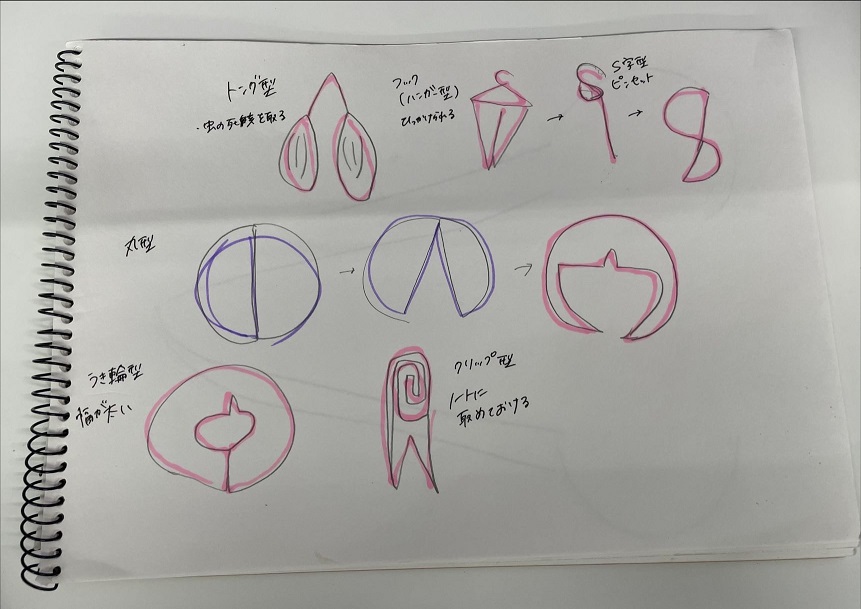 トング型
・虫の死骸を取る
フック
(ハンガー型)
ひっかけられる
S字型
ピンセット
丸型
うき輪型
幅が太い
クリップ型
ノートに
取めておける